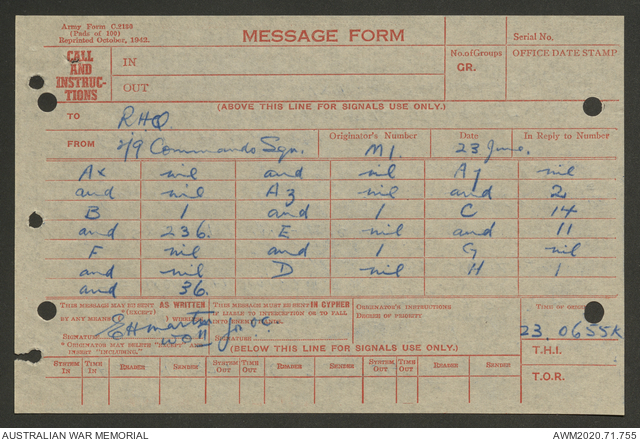 Army Form C.2128
(Pads of 100)
Reprinted October, 1942.
MESSAGE FORM
Serial No.
CALL AND INSTRUCTIONS
IN
OUT
No. of Groups
GR.
OFFICE DATE STAMP
(ABOVE THIS LINE FOR SIGNALS USE ONLY.)
TO RHQ.
FROM 2/9 Commando Sqn.
Originator's Number M1.
Date 23 June.
In Reply to Number
nil and nil nil
and nil nil and 2
B 1 and 1 C 14
and 236. E nil and 11
F nil and 1 G nil
and nil D nil H 1
and 36.
THIS MESSAGE MAY BE SENT AS WRITTEN (EXCEPT)
BY ANY MEANS WIRELESS
SIGNATURE EH Martin WO II
* ORIGINATOR MAY DELETE "EXCEPT" AND INSERT "INCLUDING."
THIS MESSAGE MUST BE SENT IN CYPHER
IF LIABLE TO INTERCEPTION OR TO FALL INTO ENEMY HANDS.
for OC.
SIGNATURE
ORIGINATOR'S INSTRUCTIONS
DEGREE OF PRIORITY
TIME OF ORIGIN
23.0655K
T.H.I.
T.O.R.
(BELOW THIS LINE FOR SIGNALS USE ONLY.)
SYSTEM IN TIME IN READER SENDER SYSTEM OUT TIME OUT READER SENDER SYSTEM OUT TIME OUT READER SENDER
AUSTRALIAN WAR MEMORIAL
AWM2020.71.755